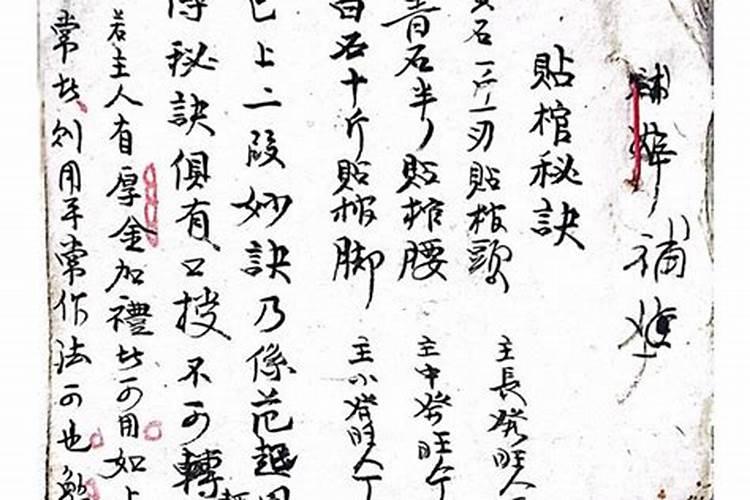 補
貼棺秘訣
石一斤二刃貼棺頭 主長發旺人
青石半斤貼棺腰 主中發旺人丁
白石十斤貼棺脚 主小發旺人丁
已上二段妙訣乃係范越
秘訣俱有口授不可轉
若主人有厚金加禮此可用如上
常此則用平常作法可也